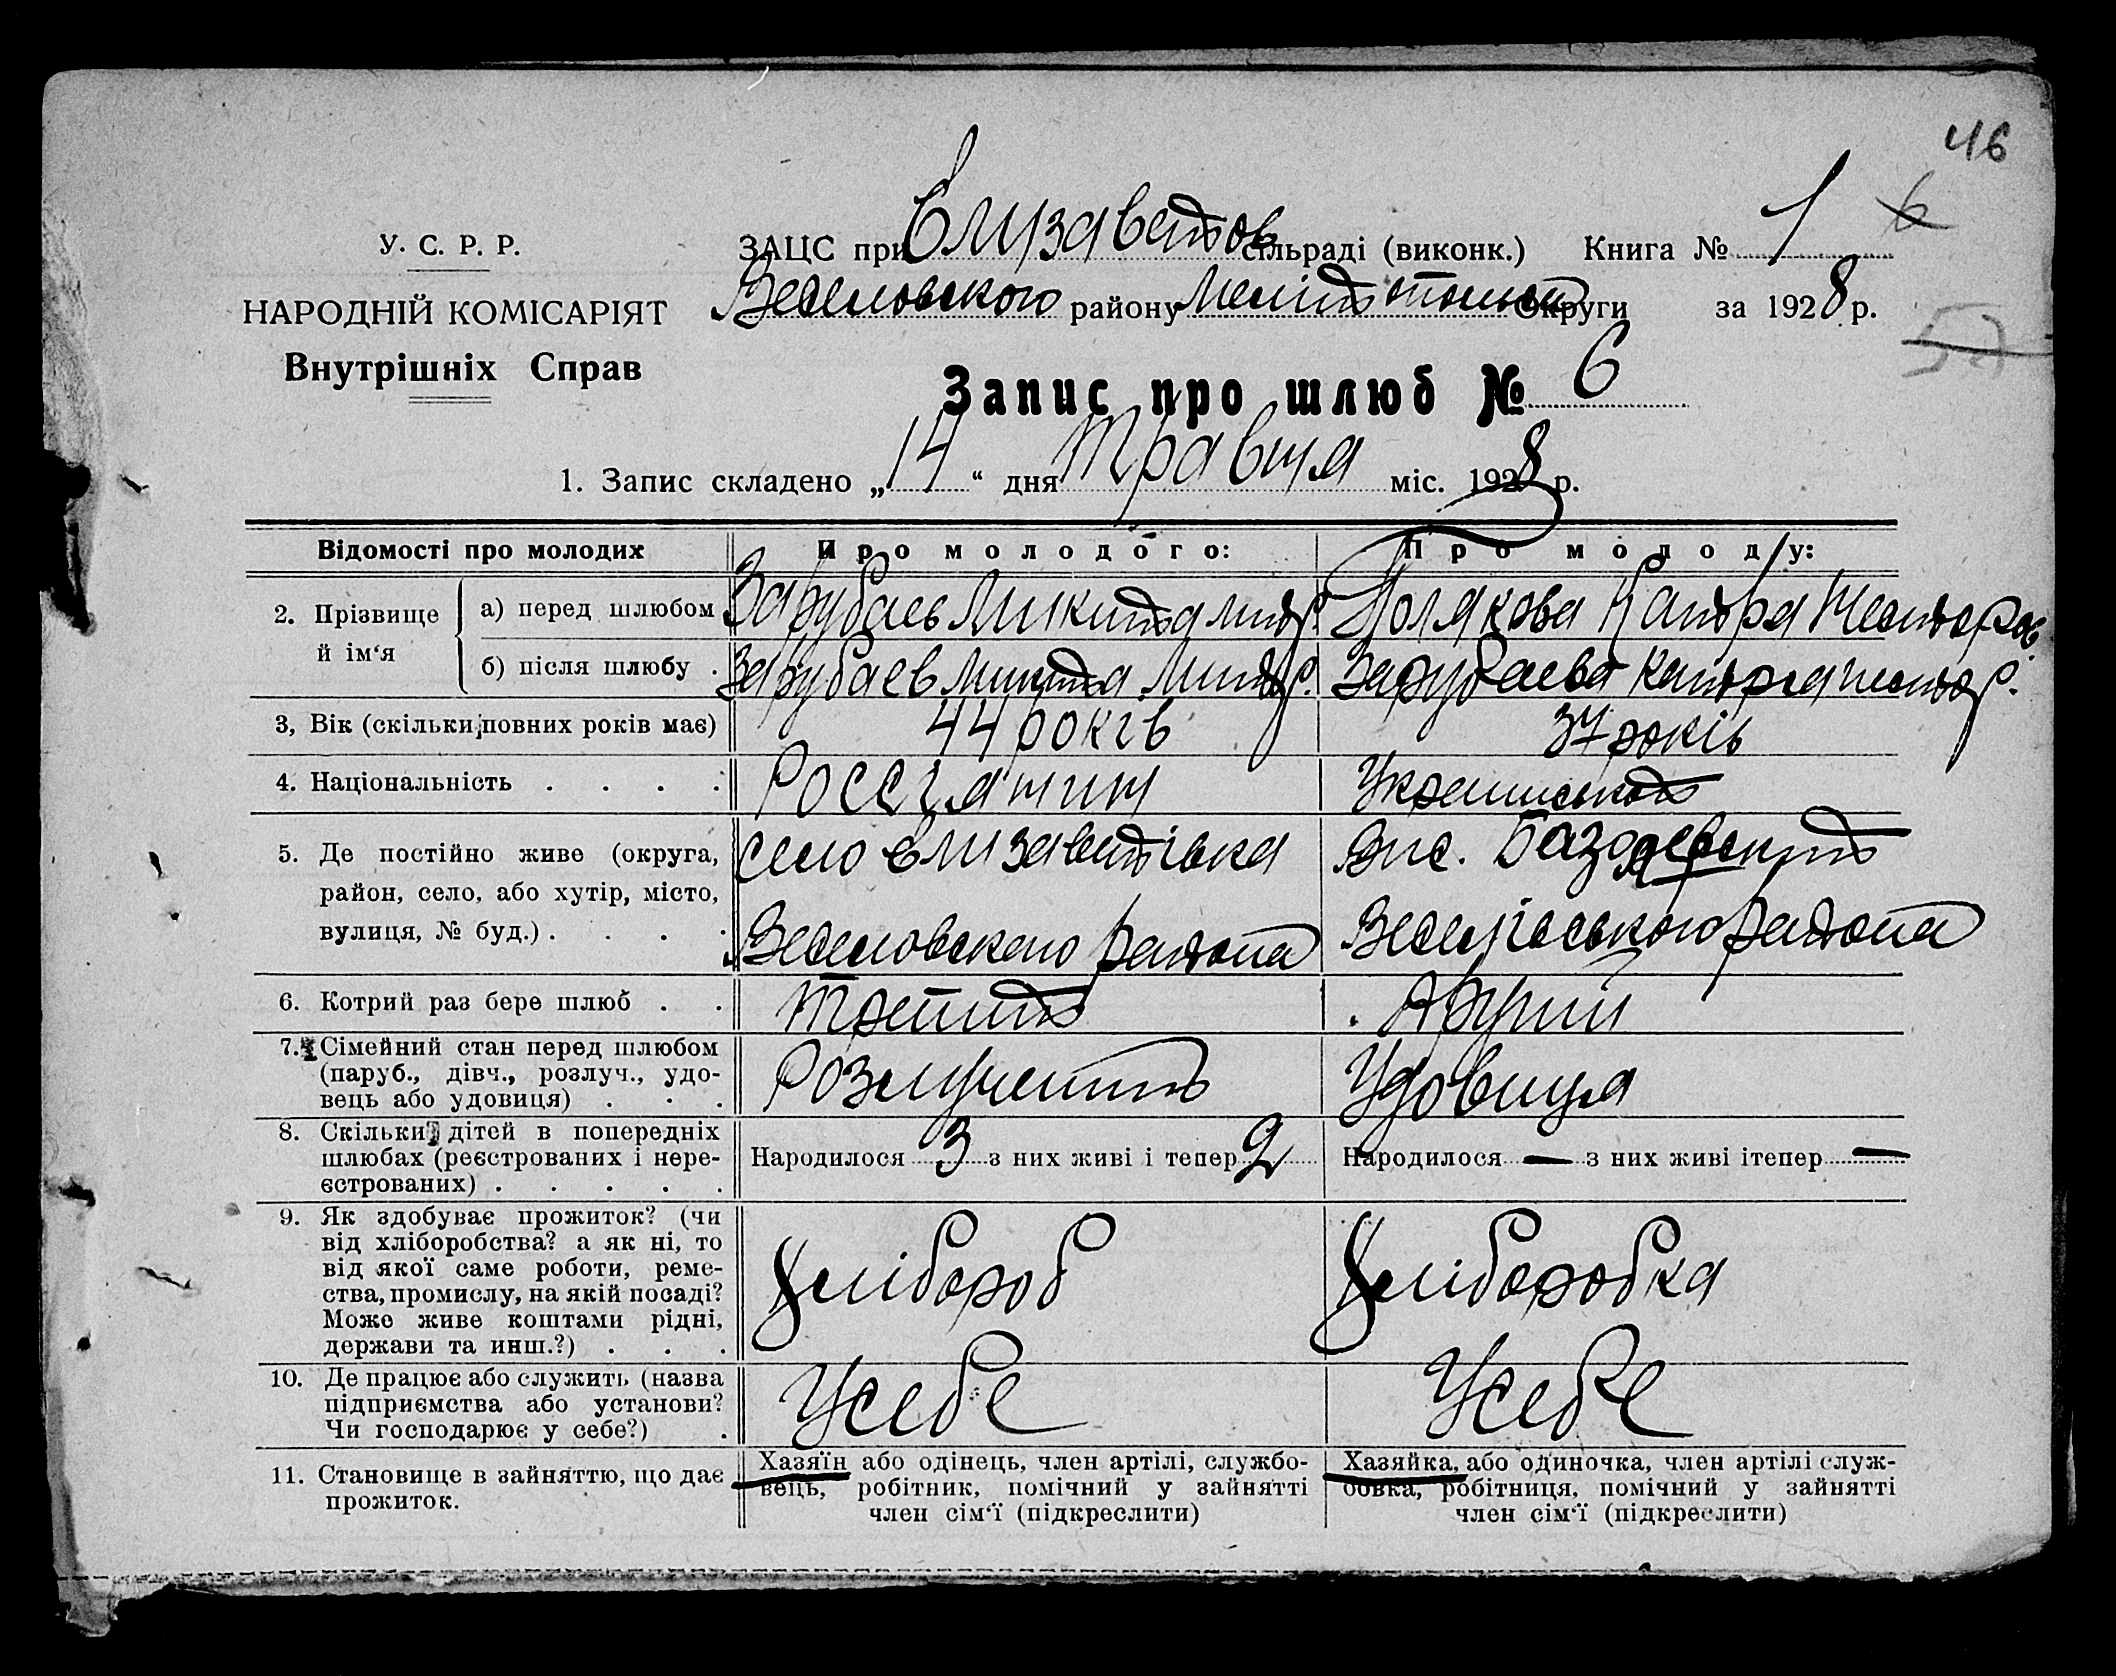 46
У. С. Р. Р.
ЗАЦС при Єлизаветов сільраді (виконк.) Книга № 1 6
НАРОДНІЙ КОМІСАРІЯТ
Веселовского району Мелітопольск Округи за 1928 р.
Внутрішніх Справ
52
Запис про шлюб № 6
1. Запис складено „14“ дня Травня міс. 1928 р.
Відомості про молодих Про молодого: Про молоду:
2. Прізвище й ім‘я
а) перед шлюбом Зарубаєв Микита Полякова
б) після шлюбу Зарубаєв Микита Зарубаєва
3, Вік (скільки повних років має) 44 років 37 років
4. Національність Россіянин
5. Де постійно живе (округа, район, село, або хутір, місто, вулиця, № буд.)
село Єлизаветівка
Веселовского района
Веселівського района
6. Котрий раз бере шлюб Третит Другий
7. Сімейний стан перед шлюбом (паруб., дівч., розлуч., удовець або удовиця) Удовиця
8. Скільки дітей в попередніх шлюбах (реєстрованих і нереєстрованих)
Народилося 3 з них живі і тепер 2 Народилося — з них живі ітепер —
9. Як здобуває прожиток? (чи від хліборобства? а як ні, то від якої саме роботи, ремества, промислу, на якій посаді? Може живе коштами рідні, держави та инш.?)
Хлібороб Хліборобка
10. Де працює або служить (назва підприємства або установи? Чи господарює у себе?)
У себе У себе
11. Становище в зайняттю, що дає прожиток.
Хазяїн або одінець, член артілі, службовець, робітник, помічний у зайнятті член сім‘ї (підкреслити)
Хазяйка, або одиночка, член артілі службовка, робітниця, помічний у зайнятті член сім‘ї (підкреслити)